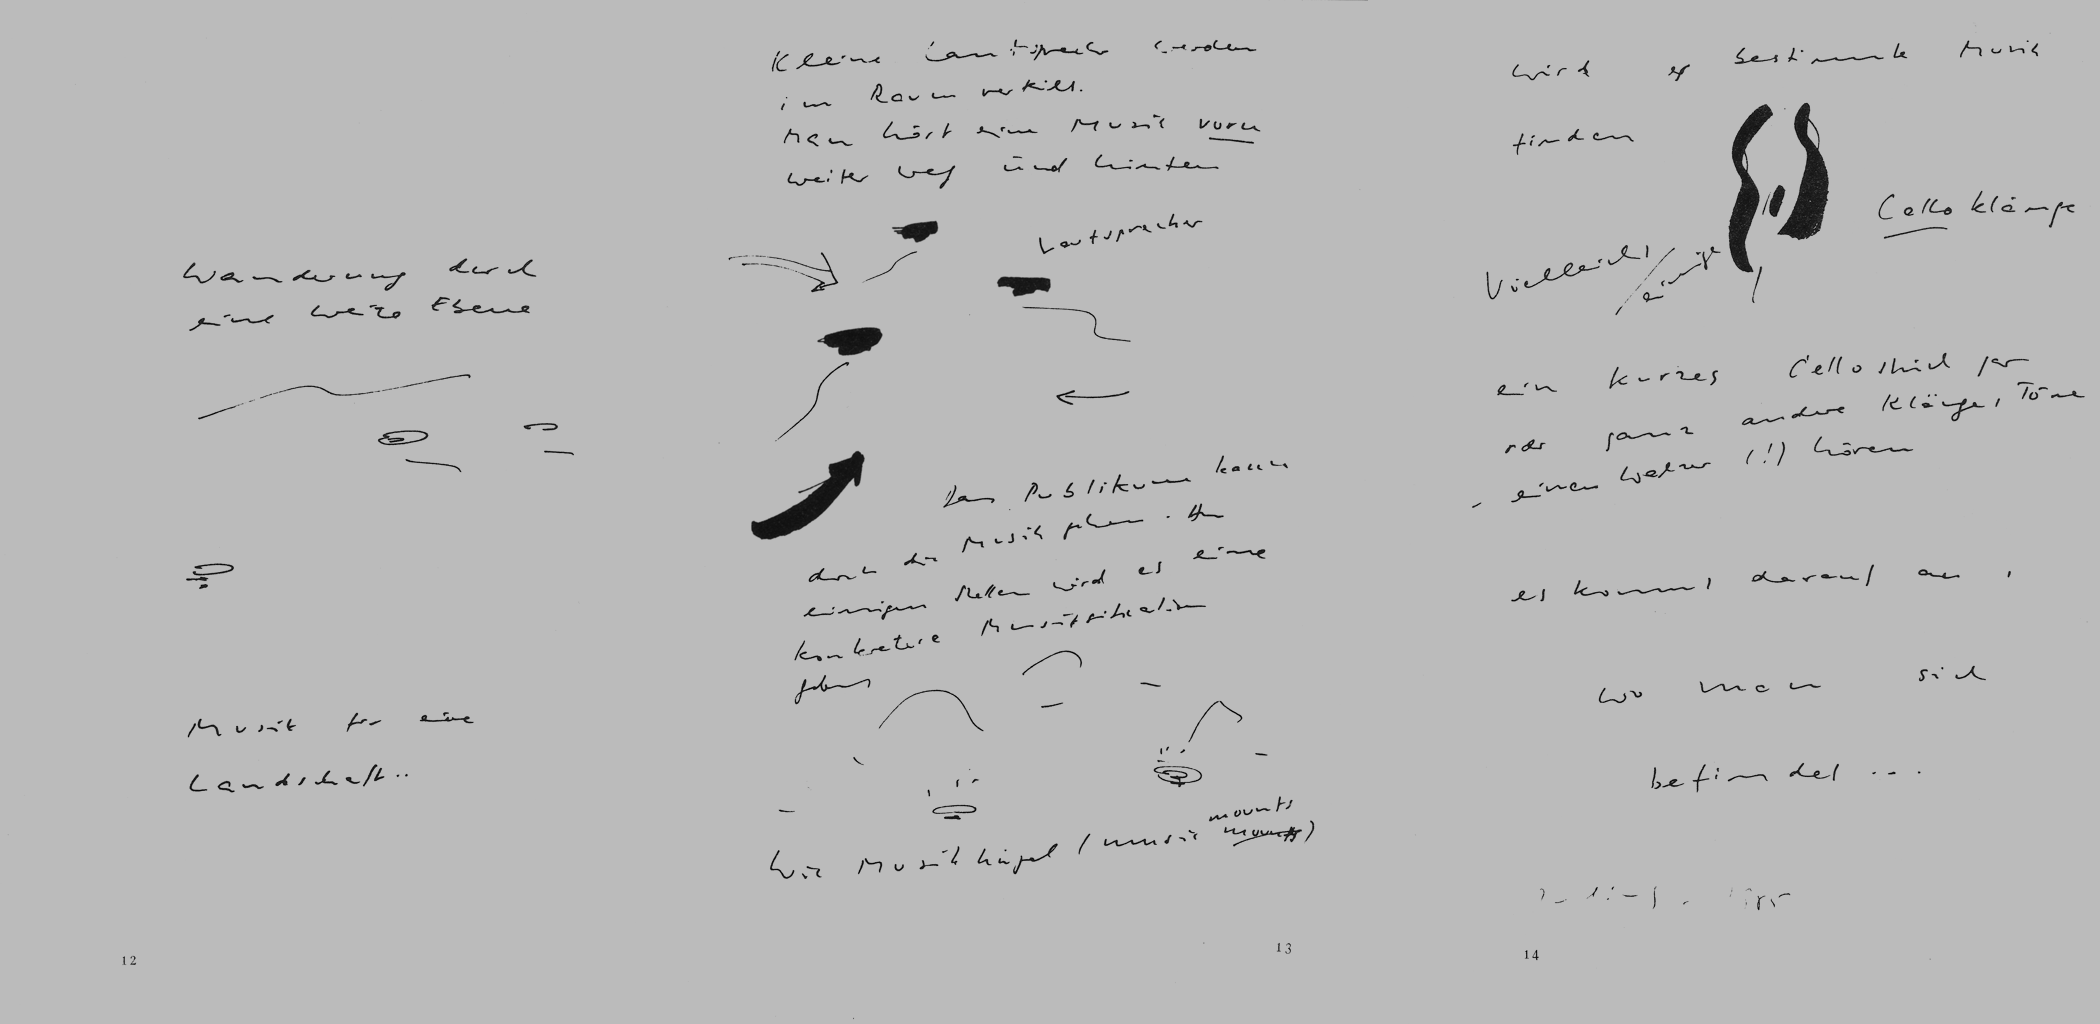 Wanderung durch
eine weite Ebene
Musik für eine
Landschaft..
12
Kleine Lautsprecher werden
im Raum verteilt.
Man hört eine Musik vorn
weiter weg und hinten
Lautsprecher
Das Publikum kann
durch die Musik gehen. An
einigen Stellen wird es eine
konkretere Musiksituation
geben
mounts
wie Musikhügel (music mounts)
13
wird es bestimmte Musik
finden
Cello klänge
Vielleicht / einige
ein kurzes Cellostück gar
oder ganz andere Klänge, Töne
- einen Walzer (!) hören
es kommt darauf an,
wo man sich
befindet ...
14